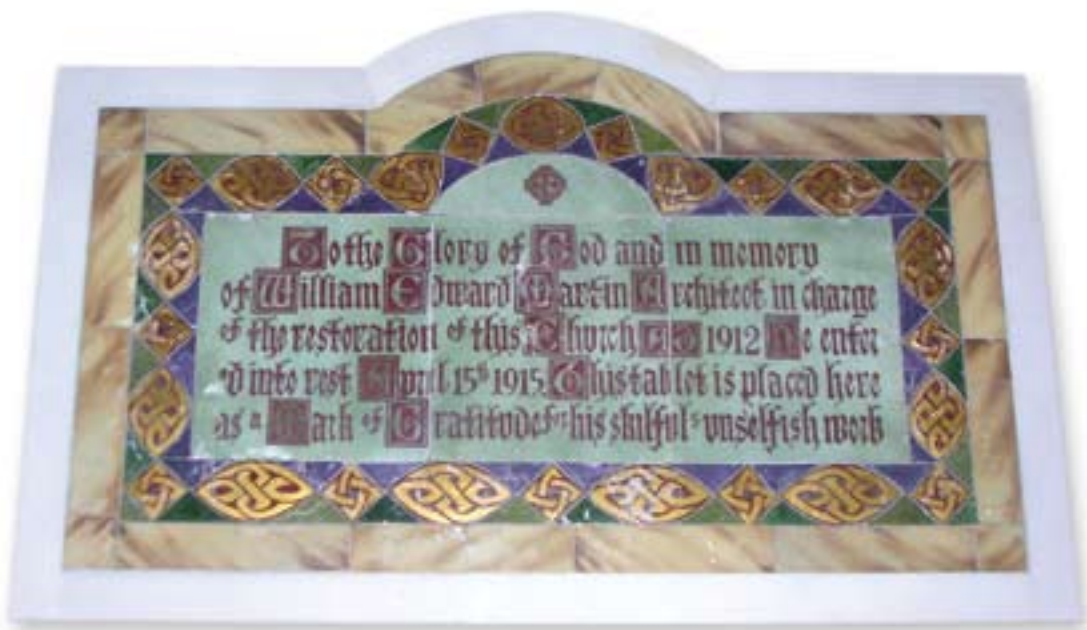 To the Glory of God and in memory
of William Edward Martin Architect in charge
of the restoration of this Church AD 1912 He enter
ed into rest April 15th 1915. This tablet is placed here
as a Mark of Gratitude for his skilful & unselfish work